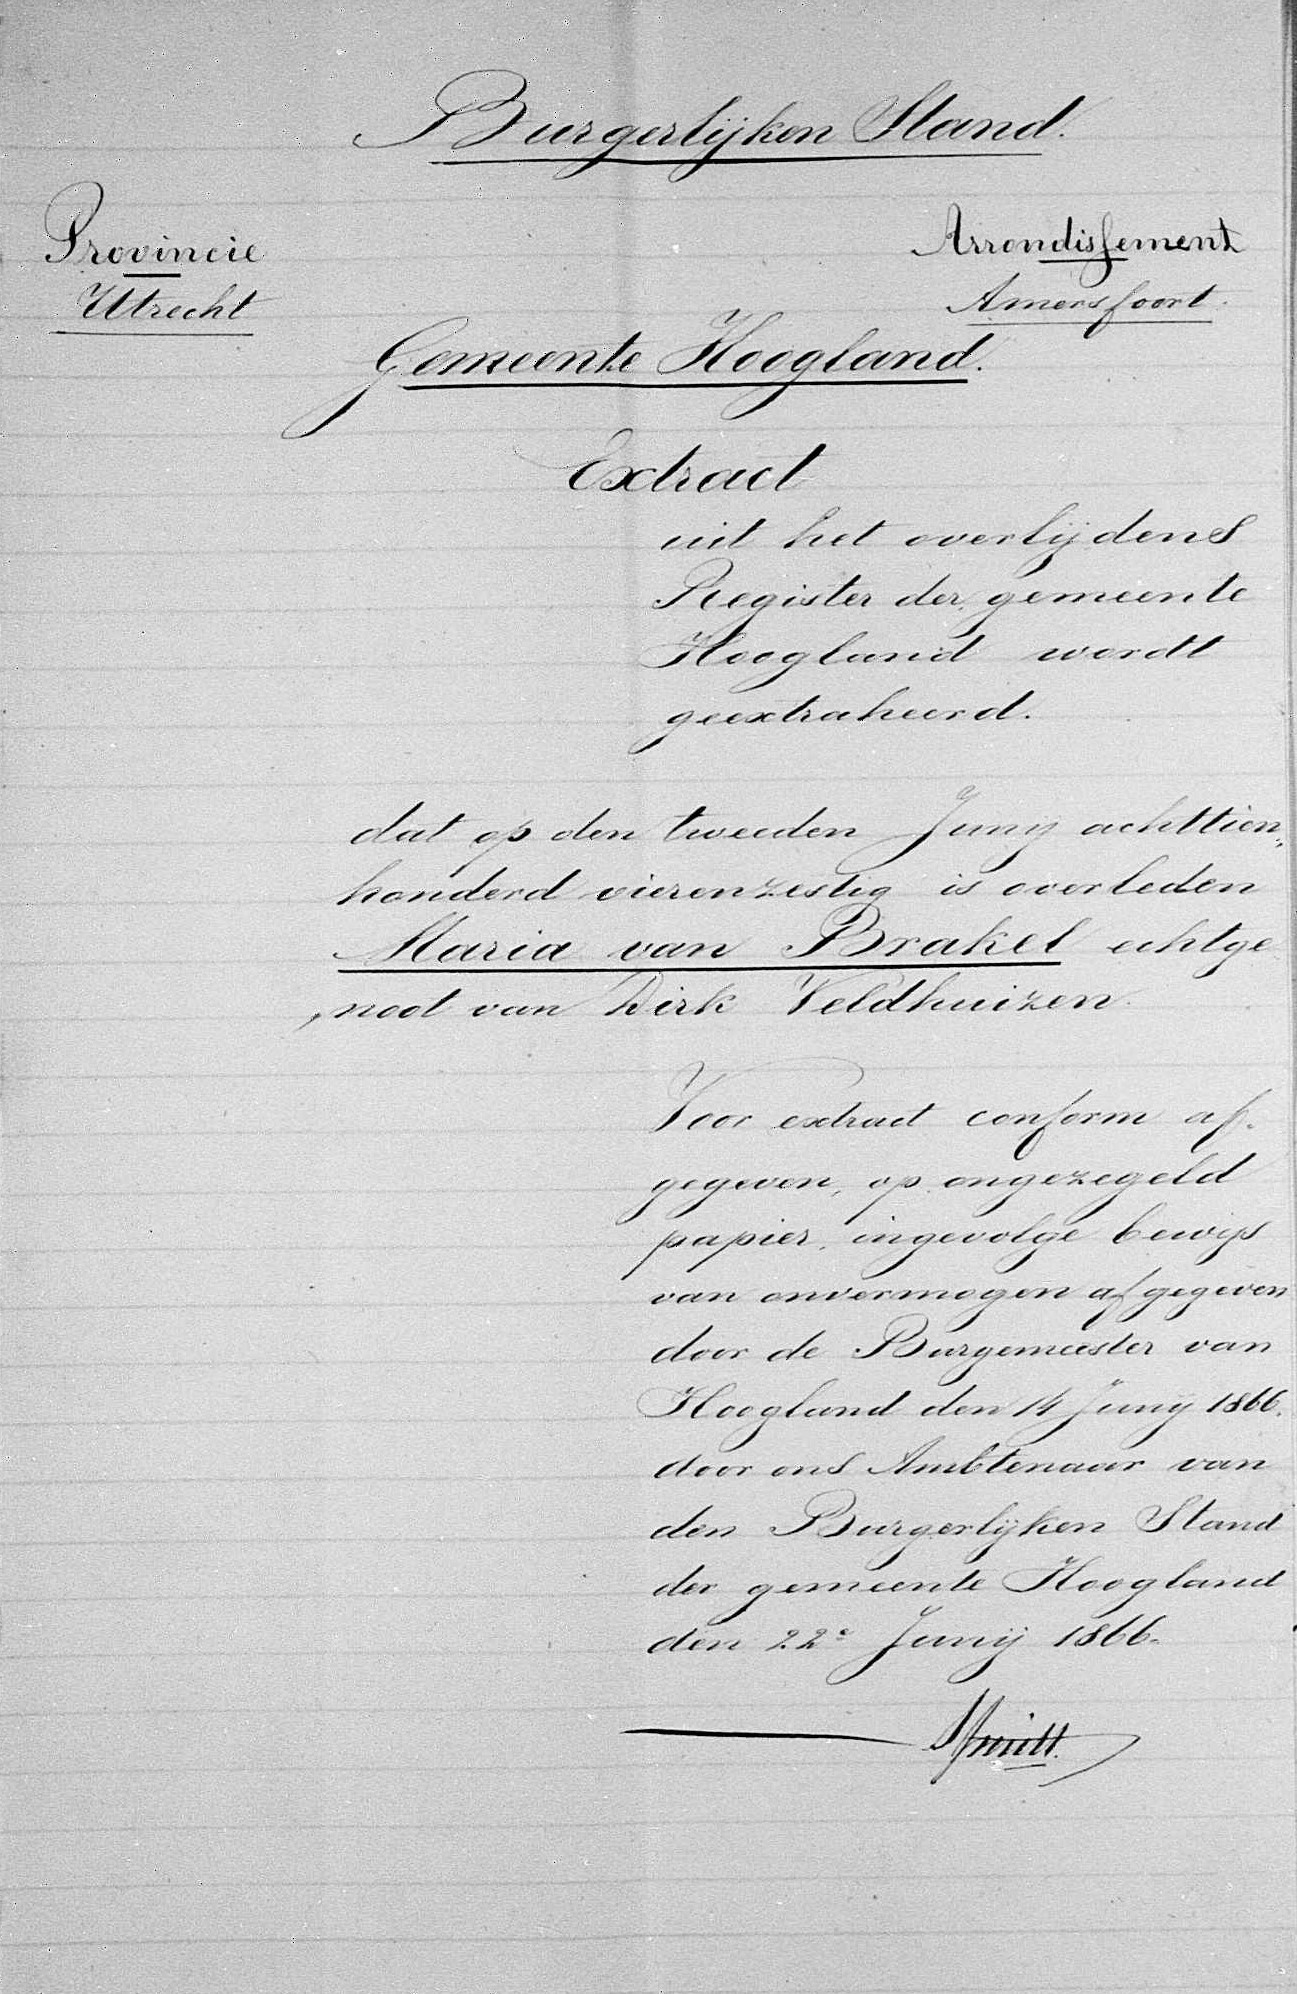 Burgerlijken Stand.
Provincie
Utrecht
Arrondissement
Amersfoort.
Gemeente Hoogland.
Extract
uit het overlijdens
Register der gemeente
Hoogland wordt
geextraheerd.
dat op den tweeden Junij achttien„
honderd vierenzestig is overleden
Maria van Brakel echtge
„noot van Dirk Veldhuizen.
Voor extract conform af-
gegeven, op ongezegeld
papier, ingevolge bewijs
van onvermogen afgegeven
door de Burgemeester van
Hoogland den 14 Junij 1866.
door ons Ambtenaar van
den Burgerlijken Stand
der gemeente Hoogland
den 22e Junij 1866.